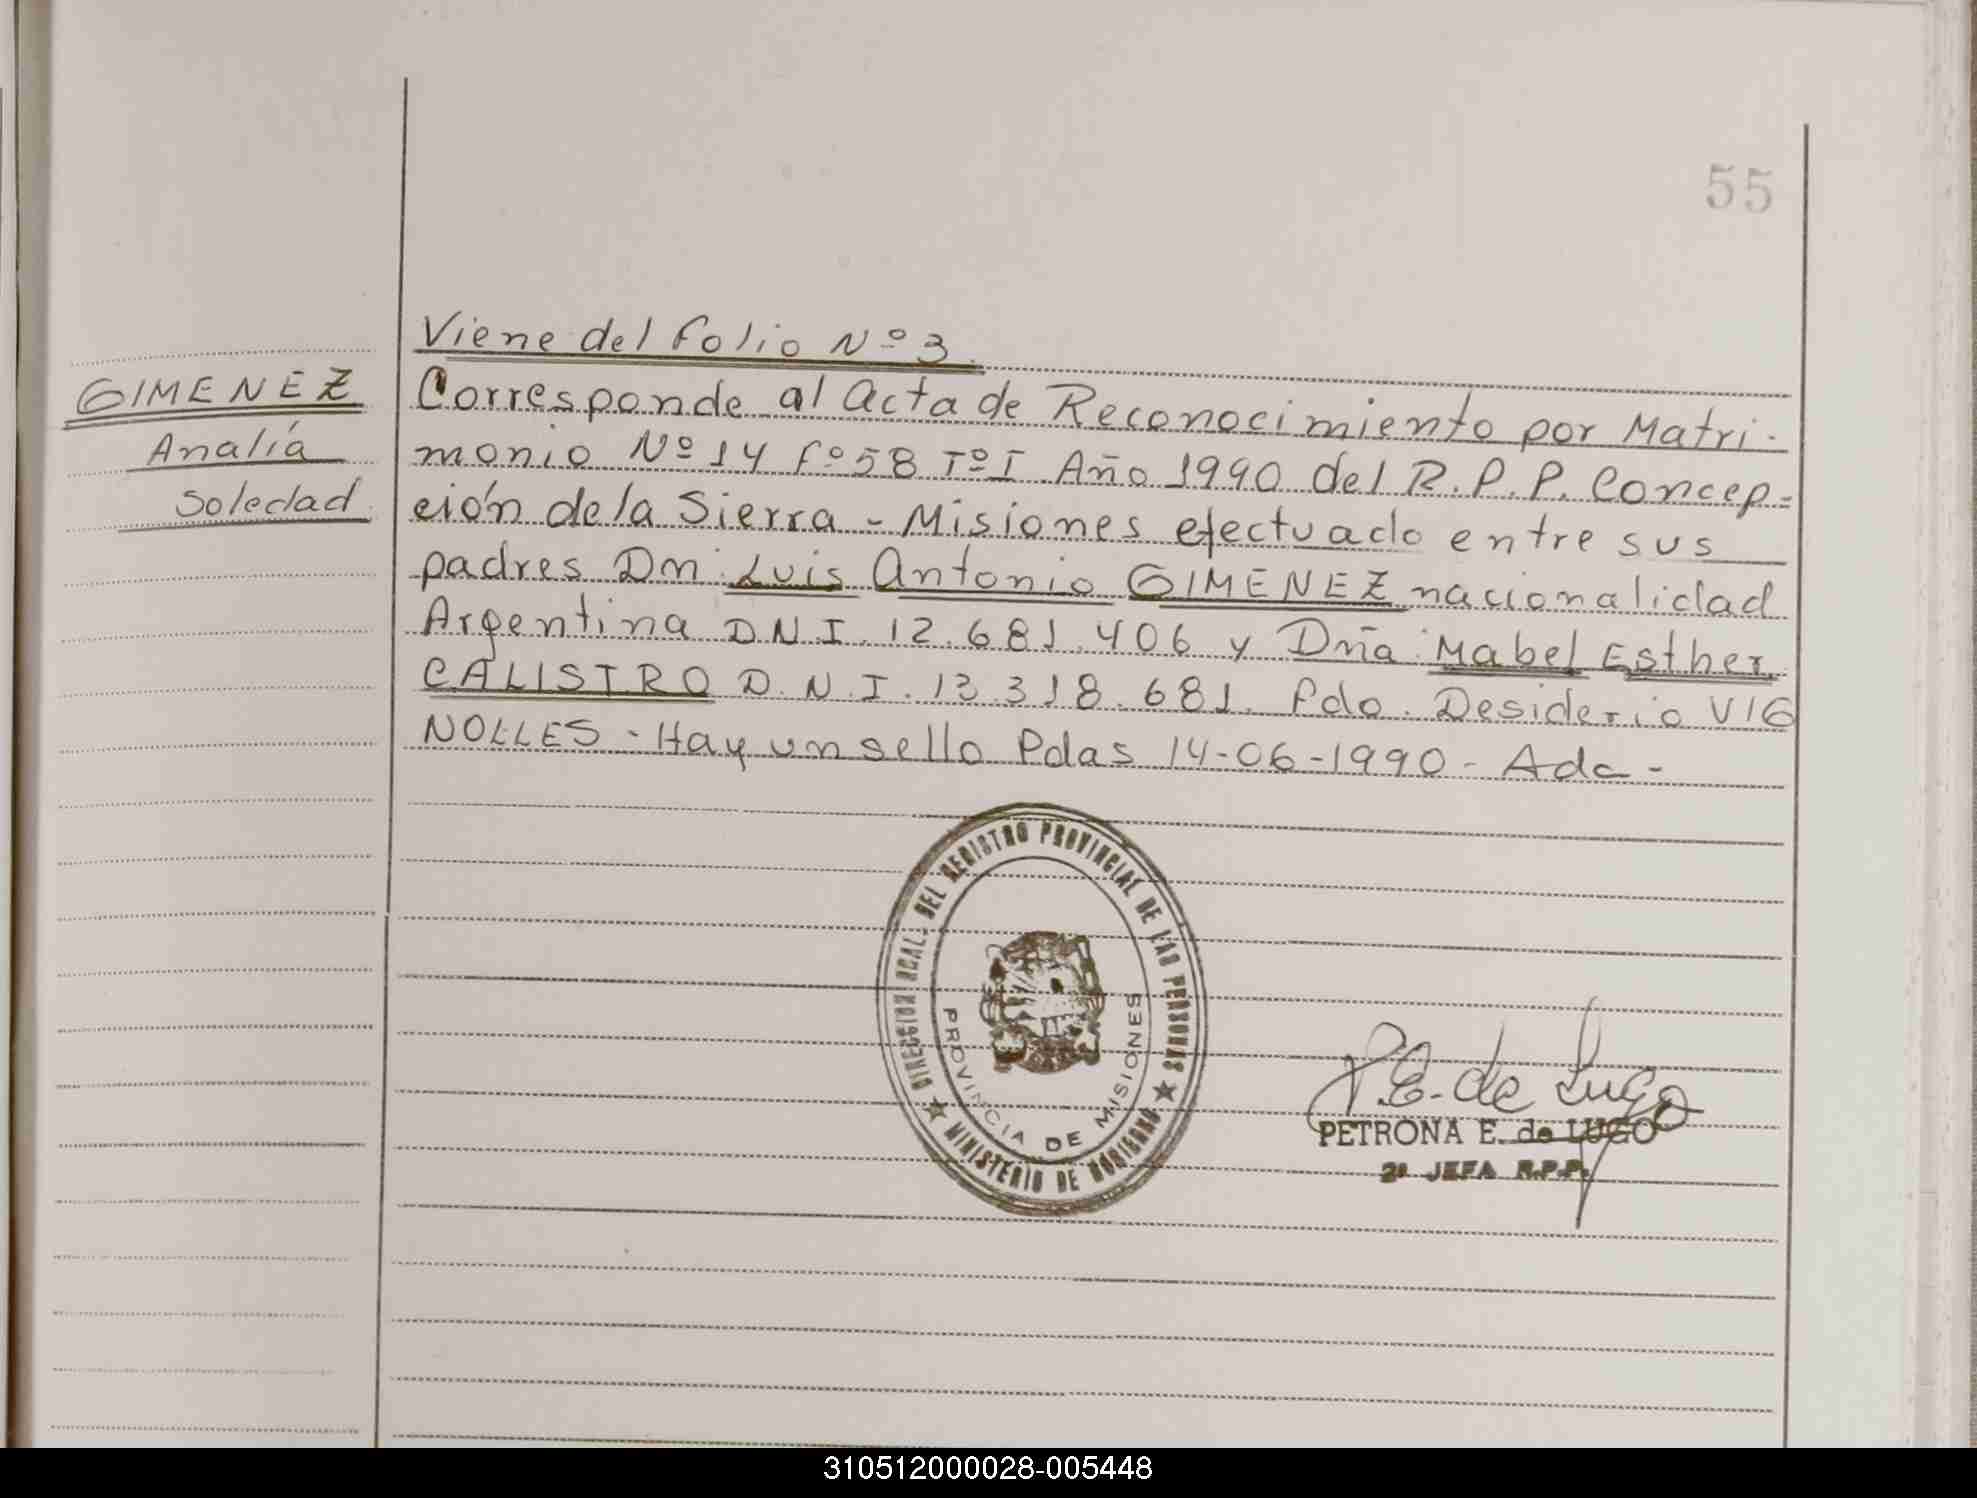 55
Viene del folio Nº 3.
GIMENEZ
Analía
Soledad
Corresponde al Acta de Reconocimiento por Matri-
monio Nº 14 Fº 58 Tº I Año 1990 del R.P.P. Concep=
ción de la Sierra - Misiones efectuado entre sus
padres Dn: Luis Antonio GIMENEZ nacionalidad
Argentina D.N.I. 12.681.406 y Dña: Mabel Esther
CALISTRO D.N.I. 13.318.681. Fdo. Desiderio VIG
NOLLES - Hay un sello Pdas 14-06-1990 - Adc -
DIRECCION GRAL. DEL REGISTRO PROVINCIAL DE LAS PERSONAS
PROVINCIA DE MISIONES
MINISTERIO DE GOBIERNO
P.E. de Lugo
PETRONA E. de LUGO
2ª JEFA R.P.P.
310512000028-005448